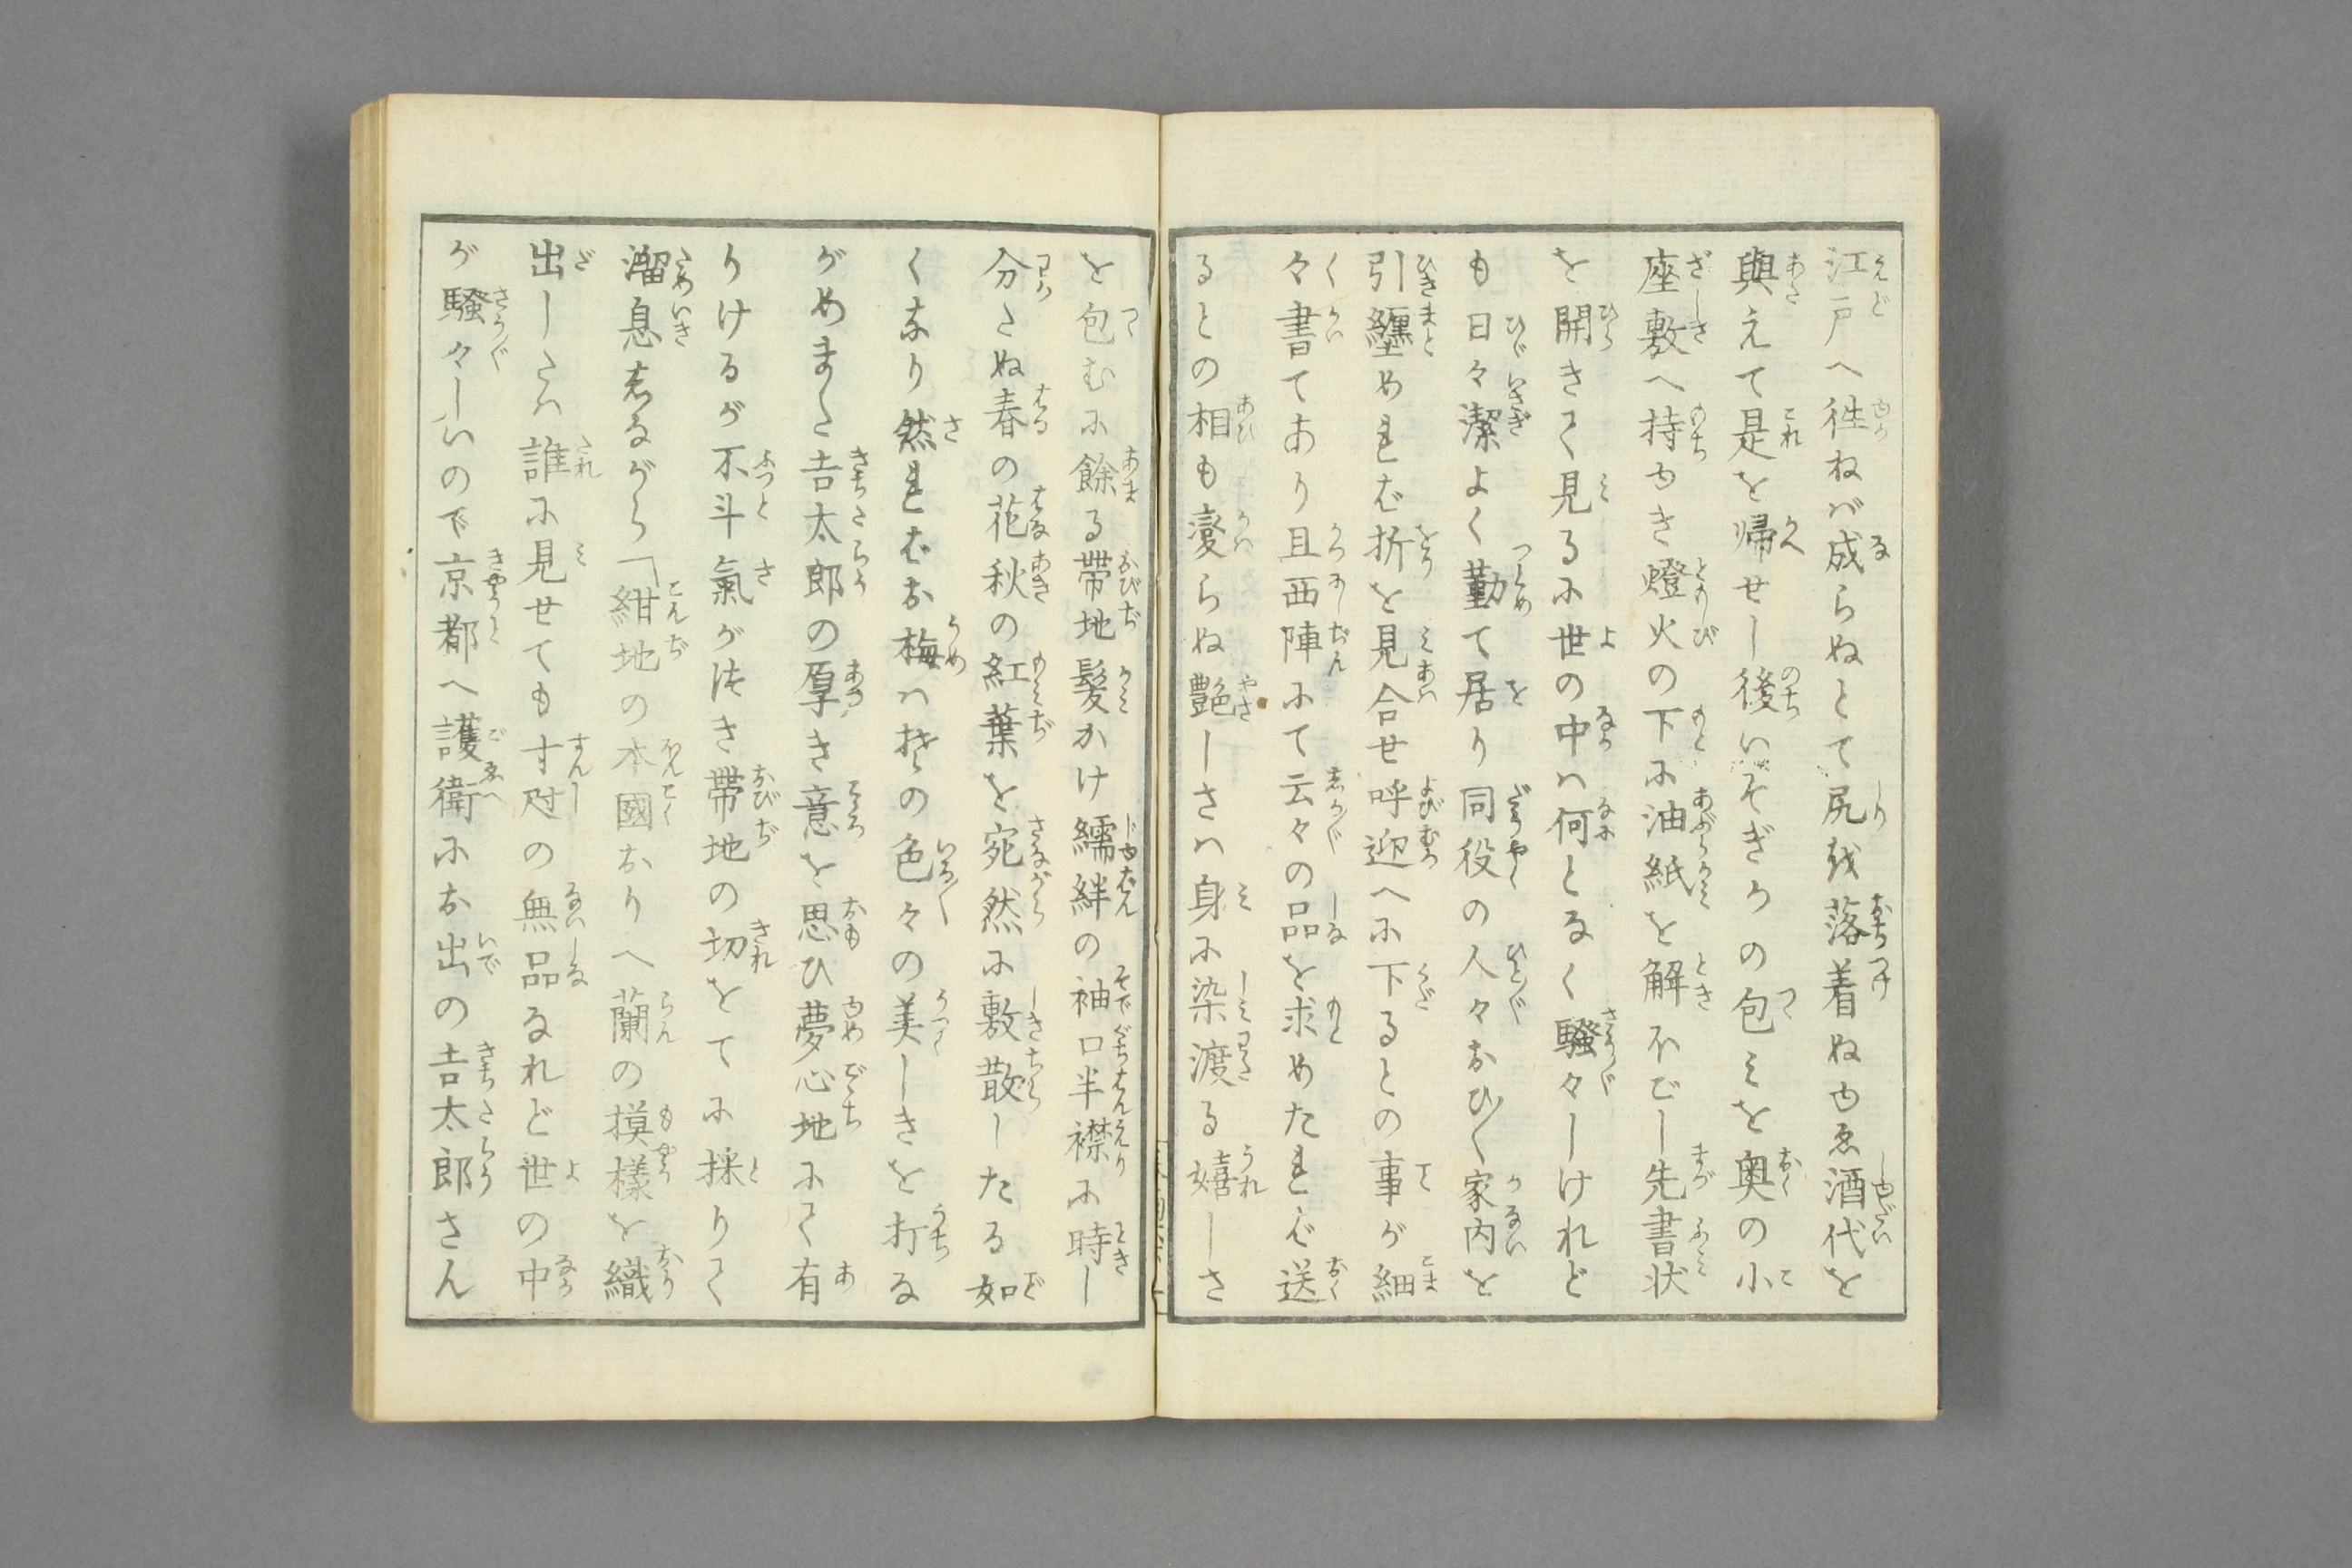 江戸へ徃ねバ成らぬとて尻を落着ぬゆゑ酒代を
與えて是を帰せし後いそぎかの包ミを奥の小
座敷へ持ゆき燈火の下に油紙を解ほどし先書状
を開きて見るに世の中ハ何となく騒々しけれど
も日々潔よく勤て居り同役の人々おひ〳〵家内を
引纏めれば折を見合せ呼迎へに下るとの事が細
々書てあり且西陣にて云々の品を求めたれば送
るとの相も変らぬ艶しさハ身に染渡る嬉しさ
を包むに餘る帯地髪かけ繻絆の袖口半襟に時し
分たぬ春の花秋の紅葉を宛然に敷散したる如
くなり然ればお梅ハ其の色々の美しきを打な
がめまた吉太郎の厚き意を思ひ夢心地にて有
りけるが不斗氣が注き帯地の切をてに採りて
溜息志ながら「紺地の本國おりへ蘭の摸様を織
出したハ誰に見せても寸尅の無品なれど世の中
が騒々しいので京都へ護衛にお出の吉太郎さん